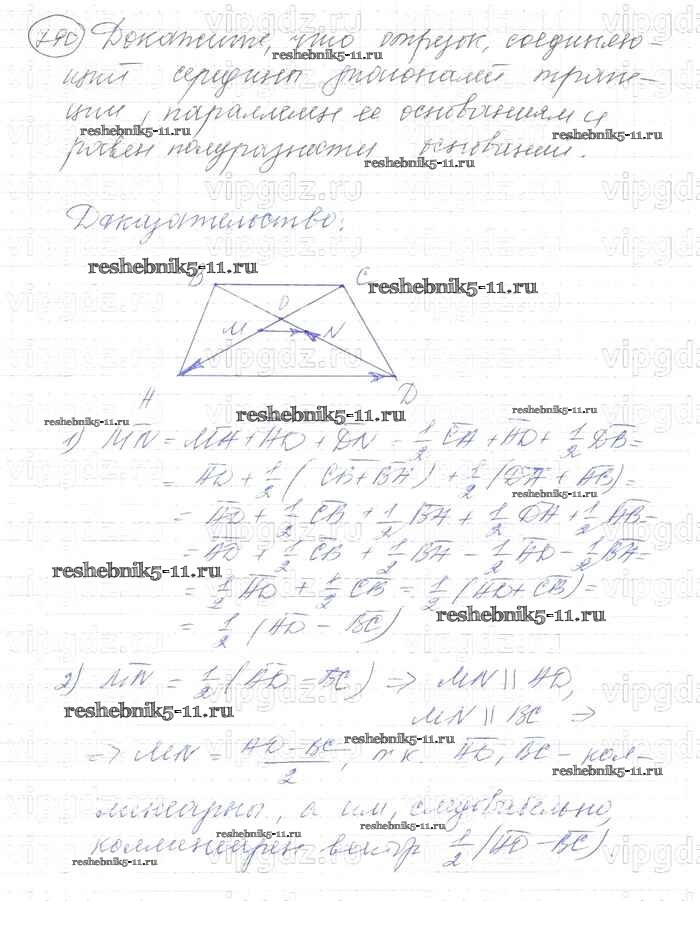 790 Докажите, что отрезок, соединяю-
щий середины диагоналей трапе-
ции, параллелен ее основаниям и
равен полуразности оснований.
Доказательство:
B C
O
M N
A D
1) MN = MA + AD + DN = 1/2 CA + AD + 1/2 DB =
= AD + 1/2 (CB + BA) + 1/2 (DA + AB) =
= AD + 1/2 CB + 1/2 BA + 1/2 DA + 1/2 AB =
= AD + 1/2 CB + 1/2 BA - 1/2 AD - 1/2 BA =
= 1/2 AD + 1/2 CB = 1/2 (AD + CB) =
= 1/2 (AD - BC)
2) MN = 1/2 (AD - BC) => MN || AD,
MN || BC =>
=> MN = AD - BC / 2, т.к. AD, BC - кол-
линеарны, а им, следовательно,
коллинеарен вектор 1/2 (AD - BC).
reshebnik5-11.ru
vipgdz.ru